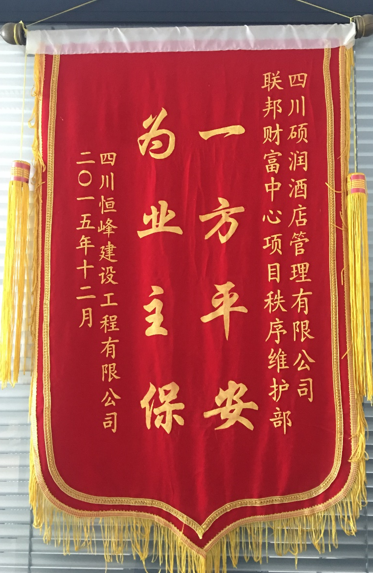 四川硕润酒店管理有限公司
联邦财富中心项目秩序维护部
一方平安
为业主保
四川恒峰建设工程有限公司
二〇一五年十二月